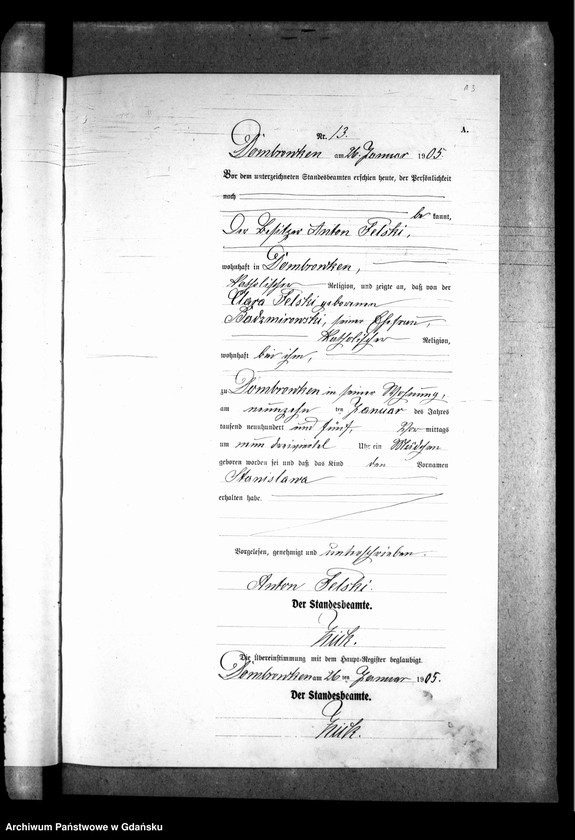 13
A.
Nr. 13.
Dombrowken am 26. Januar 1905.
Vor dem unterzeichneten Standesbeamten erschien heute, der Persönlichkeit
nach
be kannt,
Der Besitzer Anton Felski,
wohnhaft in Dombrowken,
katholischer Religion, und zeigte an, daß von der
Clara Felski geborenen
Badzmirowski, seiner Ehefrau,
katholischer Religion,
wohnhaft bei ihm,
zu Dombrowken in seiner Wohnung,
am neunzehn ten Januar des Jahres
tausend neunhundert und fünf, Vor mittags
um neun dreiviertel Uhr ein Mädchen
geboren worden sei und daß das Kind den Vornamen
Stanislawa
erhalten habe.
Vorgelesen, genehmigt und unterschrieben.
Anton Felski.
Der Standesbeamte.
Die Übereinstimmung mit dem Haupt-Register beglaubigt.
Dombrowken am 26 ten Januar 1905.
Der Standesbeamte.
Archiwum Państwowe w Gdańsku